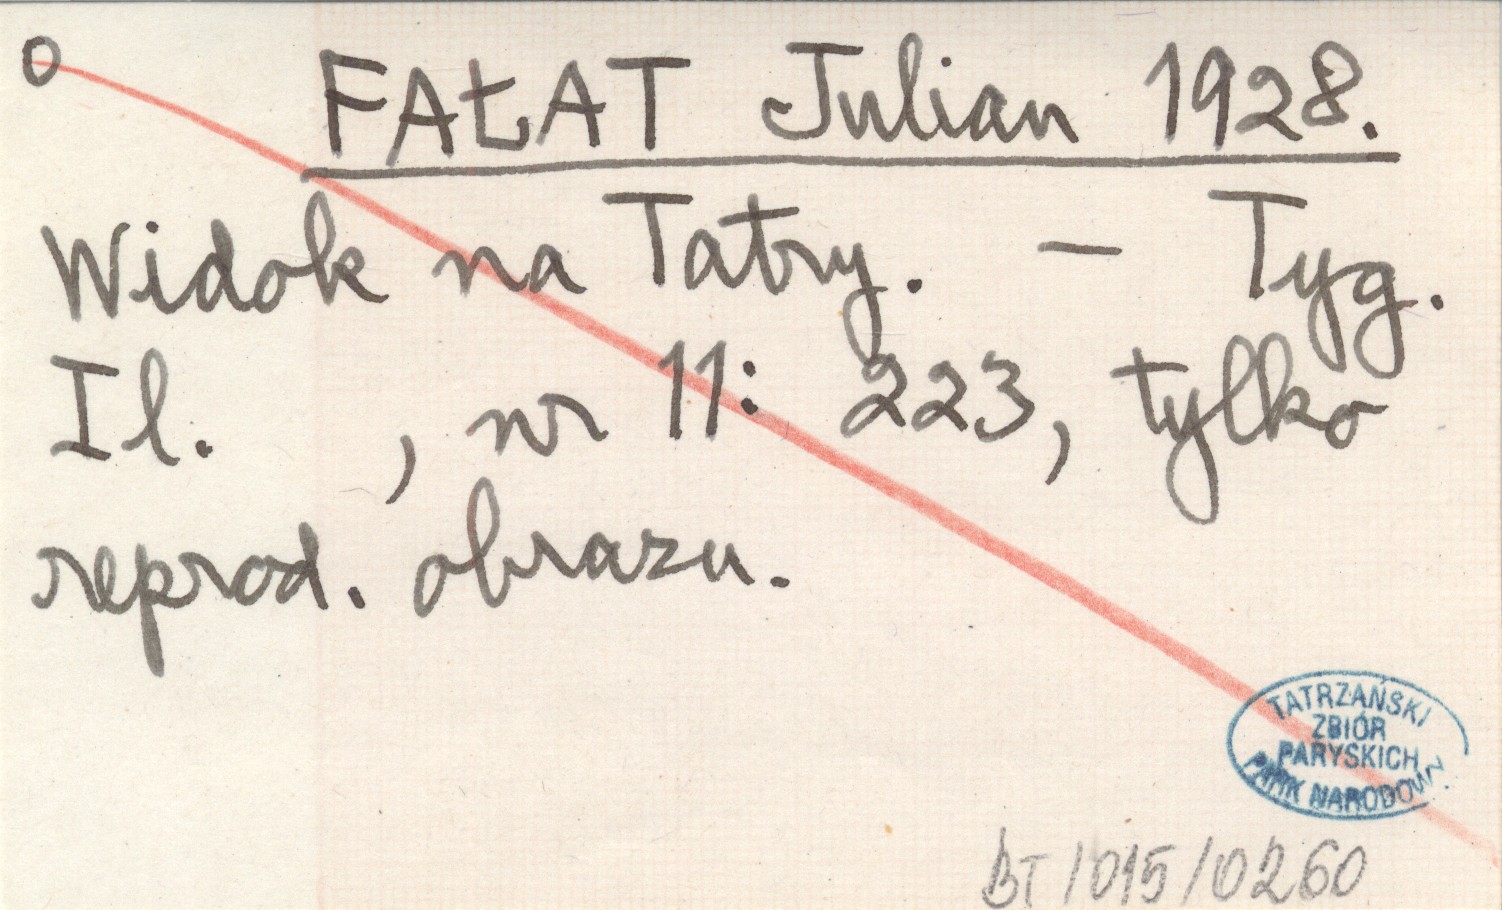 O
FAŁAT Julian 1928.
Widok na Tatry. — Tyg.
Il. , nr 11: 223, tylko
reprod. obrazu.
TATRZAŃSKI
ZBIÓR
PARYSKICH
PARK NARODOWY
BT/015/0260